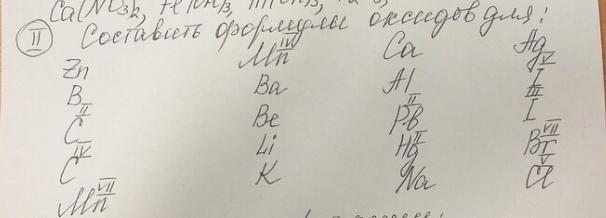 Ca(NO3)2,
II Составить формулы оксидов для:
Zn Mn IV Ca Ag
B Ba Al I V
C II Be Pb II I III
C IV Li Hg II Br VII
Mn VII K Na Cl V